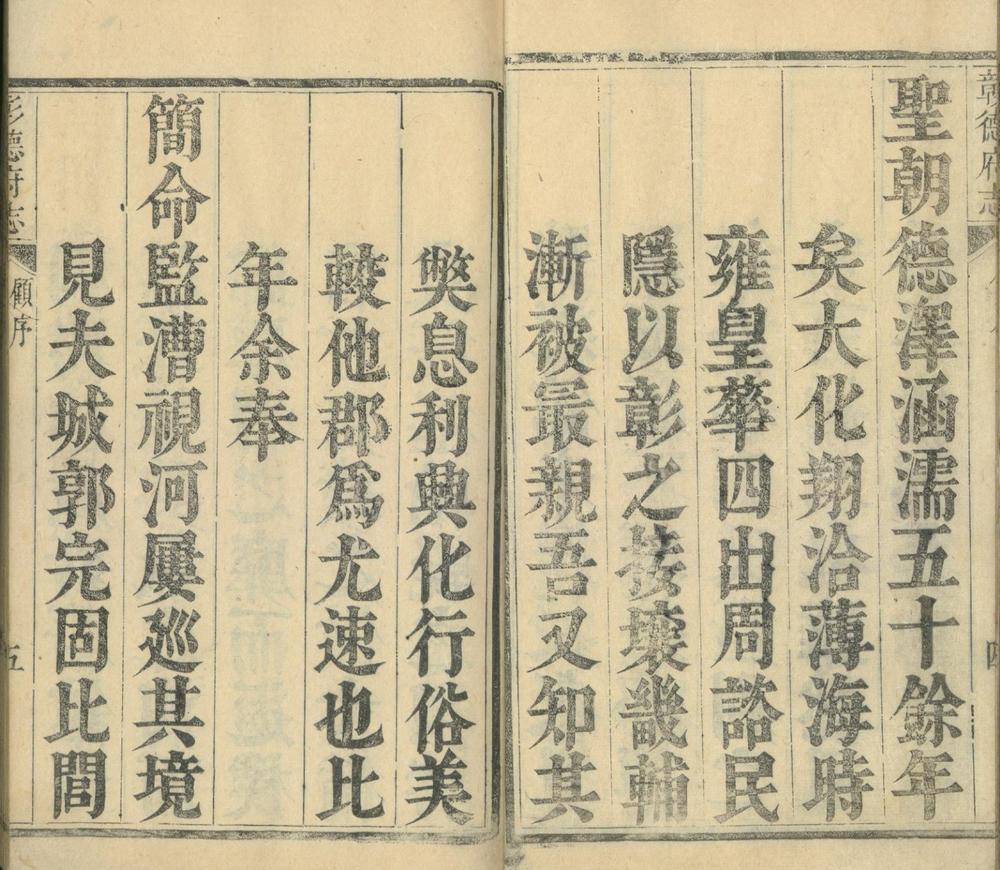 彰德府志
聖朝德澤涵濡五十餘年
矣大化翔洽薄海時
雍皇華四出周諮民
隱以彰之接壤畿輔
漸被最親吾又知其
獘息利興化行俗美
較他郡爲尤速也比
年余奉
簡命監漕視河屢廵其境
見夫城郭完固比閭
彰德府志
顧序
五